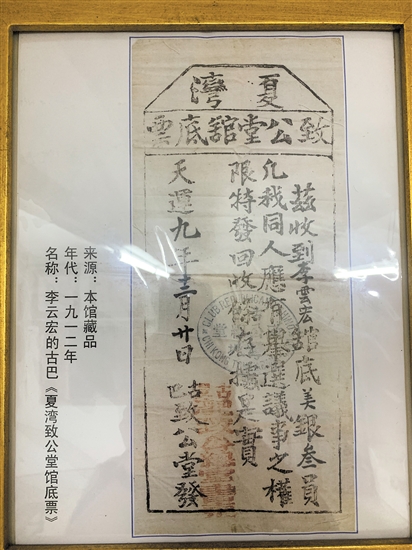 夏灣
致公堂舘底票
茲收到李雲宏舘底美銀叁員
凡我同人應有舉選議事之權
限特發回收條存據是實
天運九年十二月廿日
古巴致公堂發
来源：本馆藏品
年代：一九一二年
名称：李云宏的古巴《夏湾致公堂馆底票》